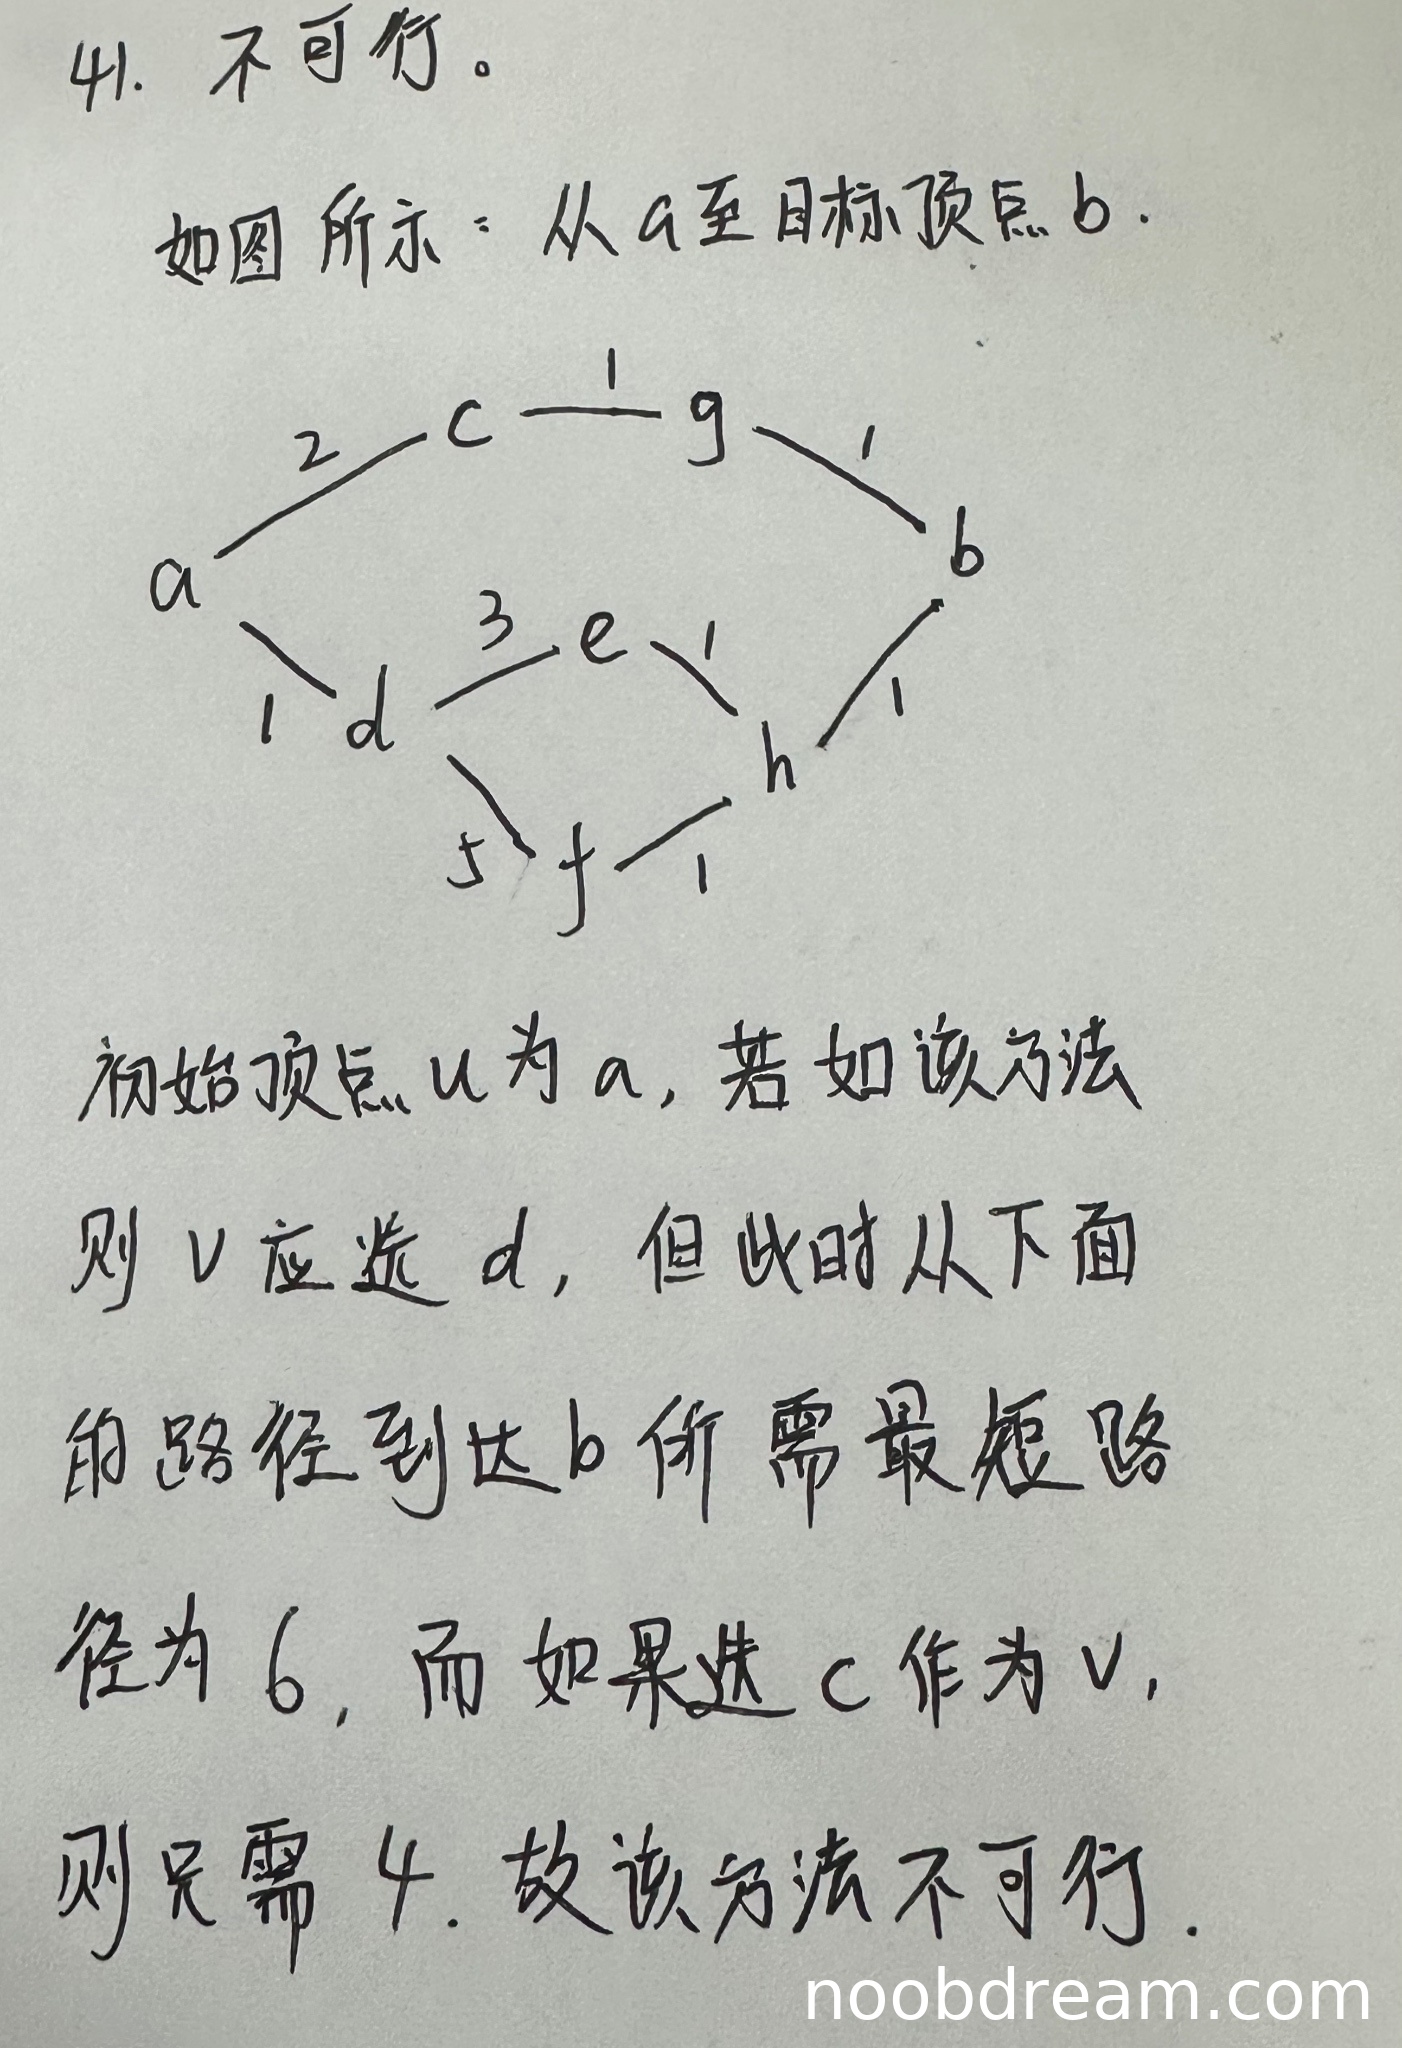 41. 不可行。
如图所示: 从a至目标顶点b.
1
2 c g 1
a b
3 e 1
1 d 1
h
5 f 1
初始顶点u为a, 若如该方法
则v应选d, 但此时从下面
的路径到达b所需最短路
径为6, 而如果选c作为v,
则只需4. 故该方法不可行.
noobdream.com